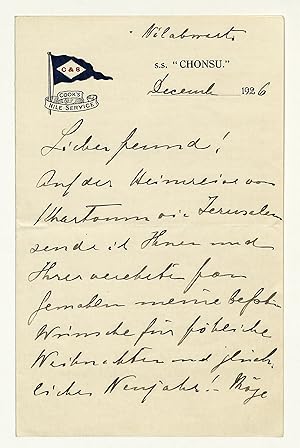 Nilabwärts
C & S
COOK'S
NILE SERVICE
S.S. "CHONSU."
Decemb 1926
Lieber Freund!
Auf der Heimreise von
Khartoum via Jerusalem
sende ich Ihnen und
Ihrer verehrten Frau
Gemahlin meine besten
Wünsche für fröhliche
Weihnachten und glück-
liches Neujahr! – Möge